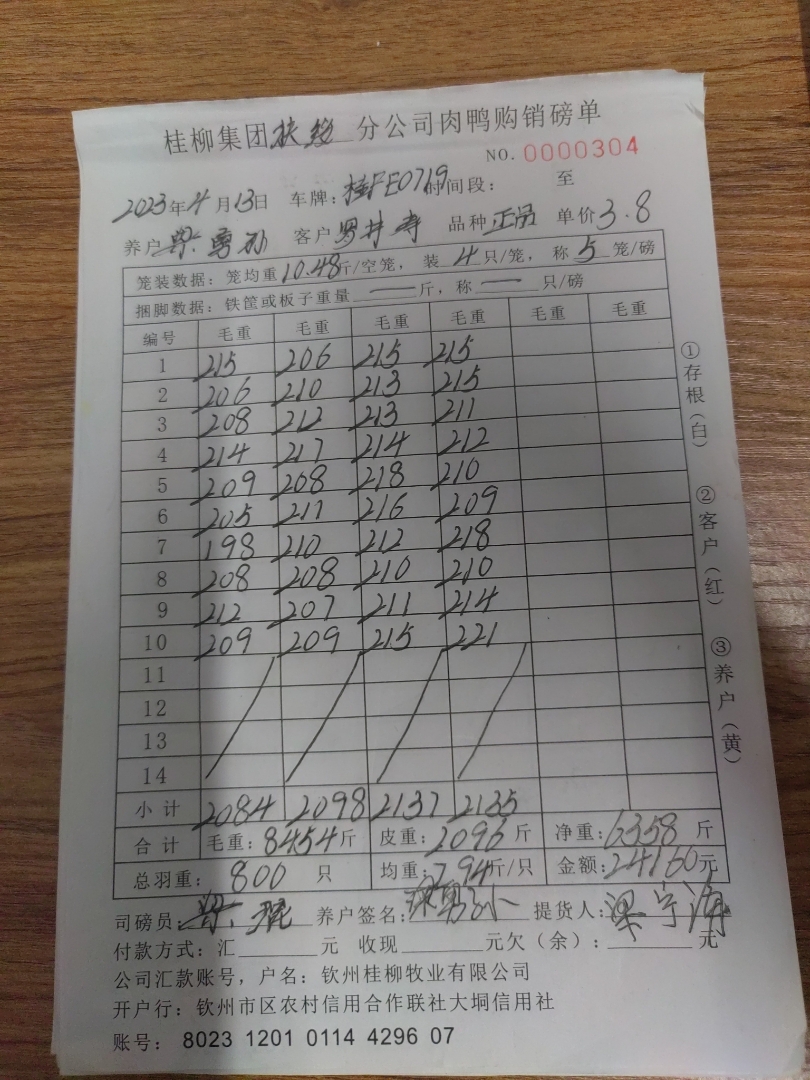 桂柳集团扶绥分公司肉鸭购销磅单
NO. 0000304
2023年4月13日 车牌：桂FE0719 时间段： 至
养户 梁勇孙 客户 罗井寿 品种 正品 单价 3.8
笼装数据：笼均重10.48斤/空笼，装4只/笼，称5笼/磅
捆脚数据：铁筐或板子重量—斤，称—只/磅
编号 毛重 毛重 毛重 毛重 毛重 毛重
1 215 206 215 215
2 206 210 213 215
3 208 212 213 211
4 214 217 214 212
5 209 208 218 210
6 205 211 216 209
7 198 210 212 218
8 208 208 210 210
9 212 207 211 214
10 209 209 215 221
11
12
13
14
小计 2084 2098 2137 2135
合计 毛重：8454斤 皮重：2096斤 净重：6358斤
总羽重：800只 均重：7.94斤/只 金额：24160元
司磅员： 养户签名： 提货人：梁宁海
付款方式：汇 元 收现 元欠（余）： 元
公司汇款账号，户名：钦州桂柳牧业有限公司
开户行：钦州市区农村信用合作联社大垌信用社
账号： 8023 1201 0114 4296 07
①存根（白） ②客户（红） ③养户（黄）